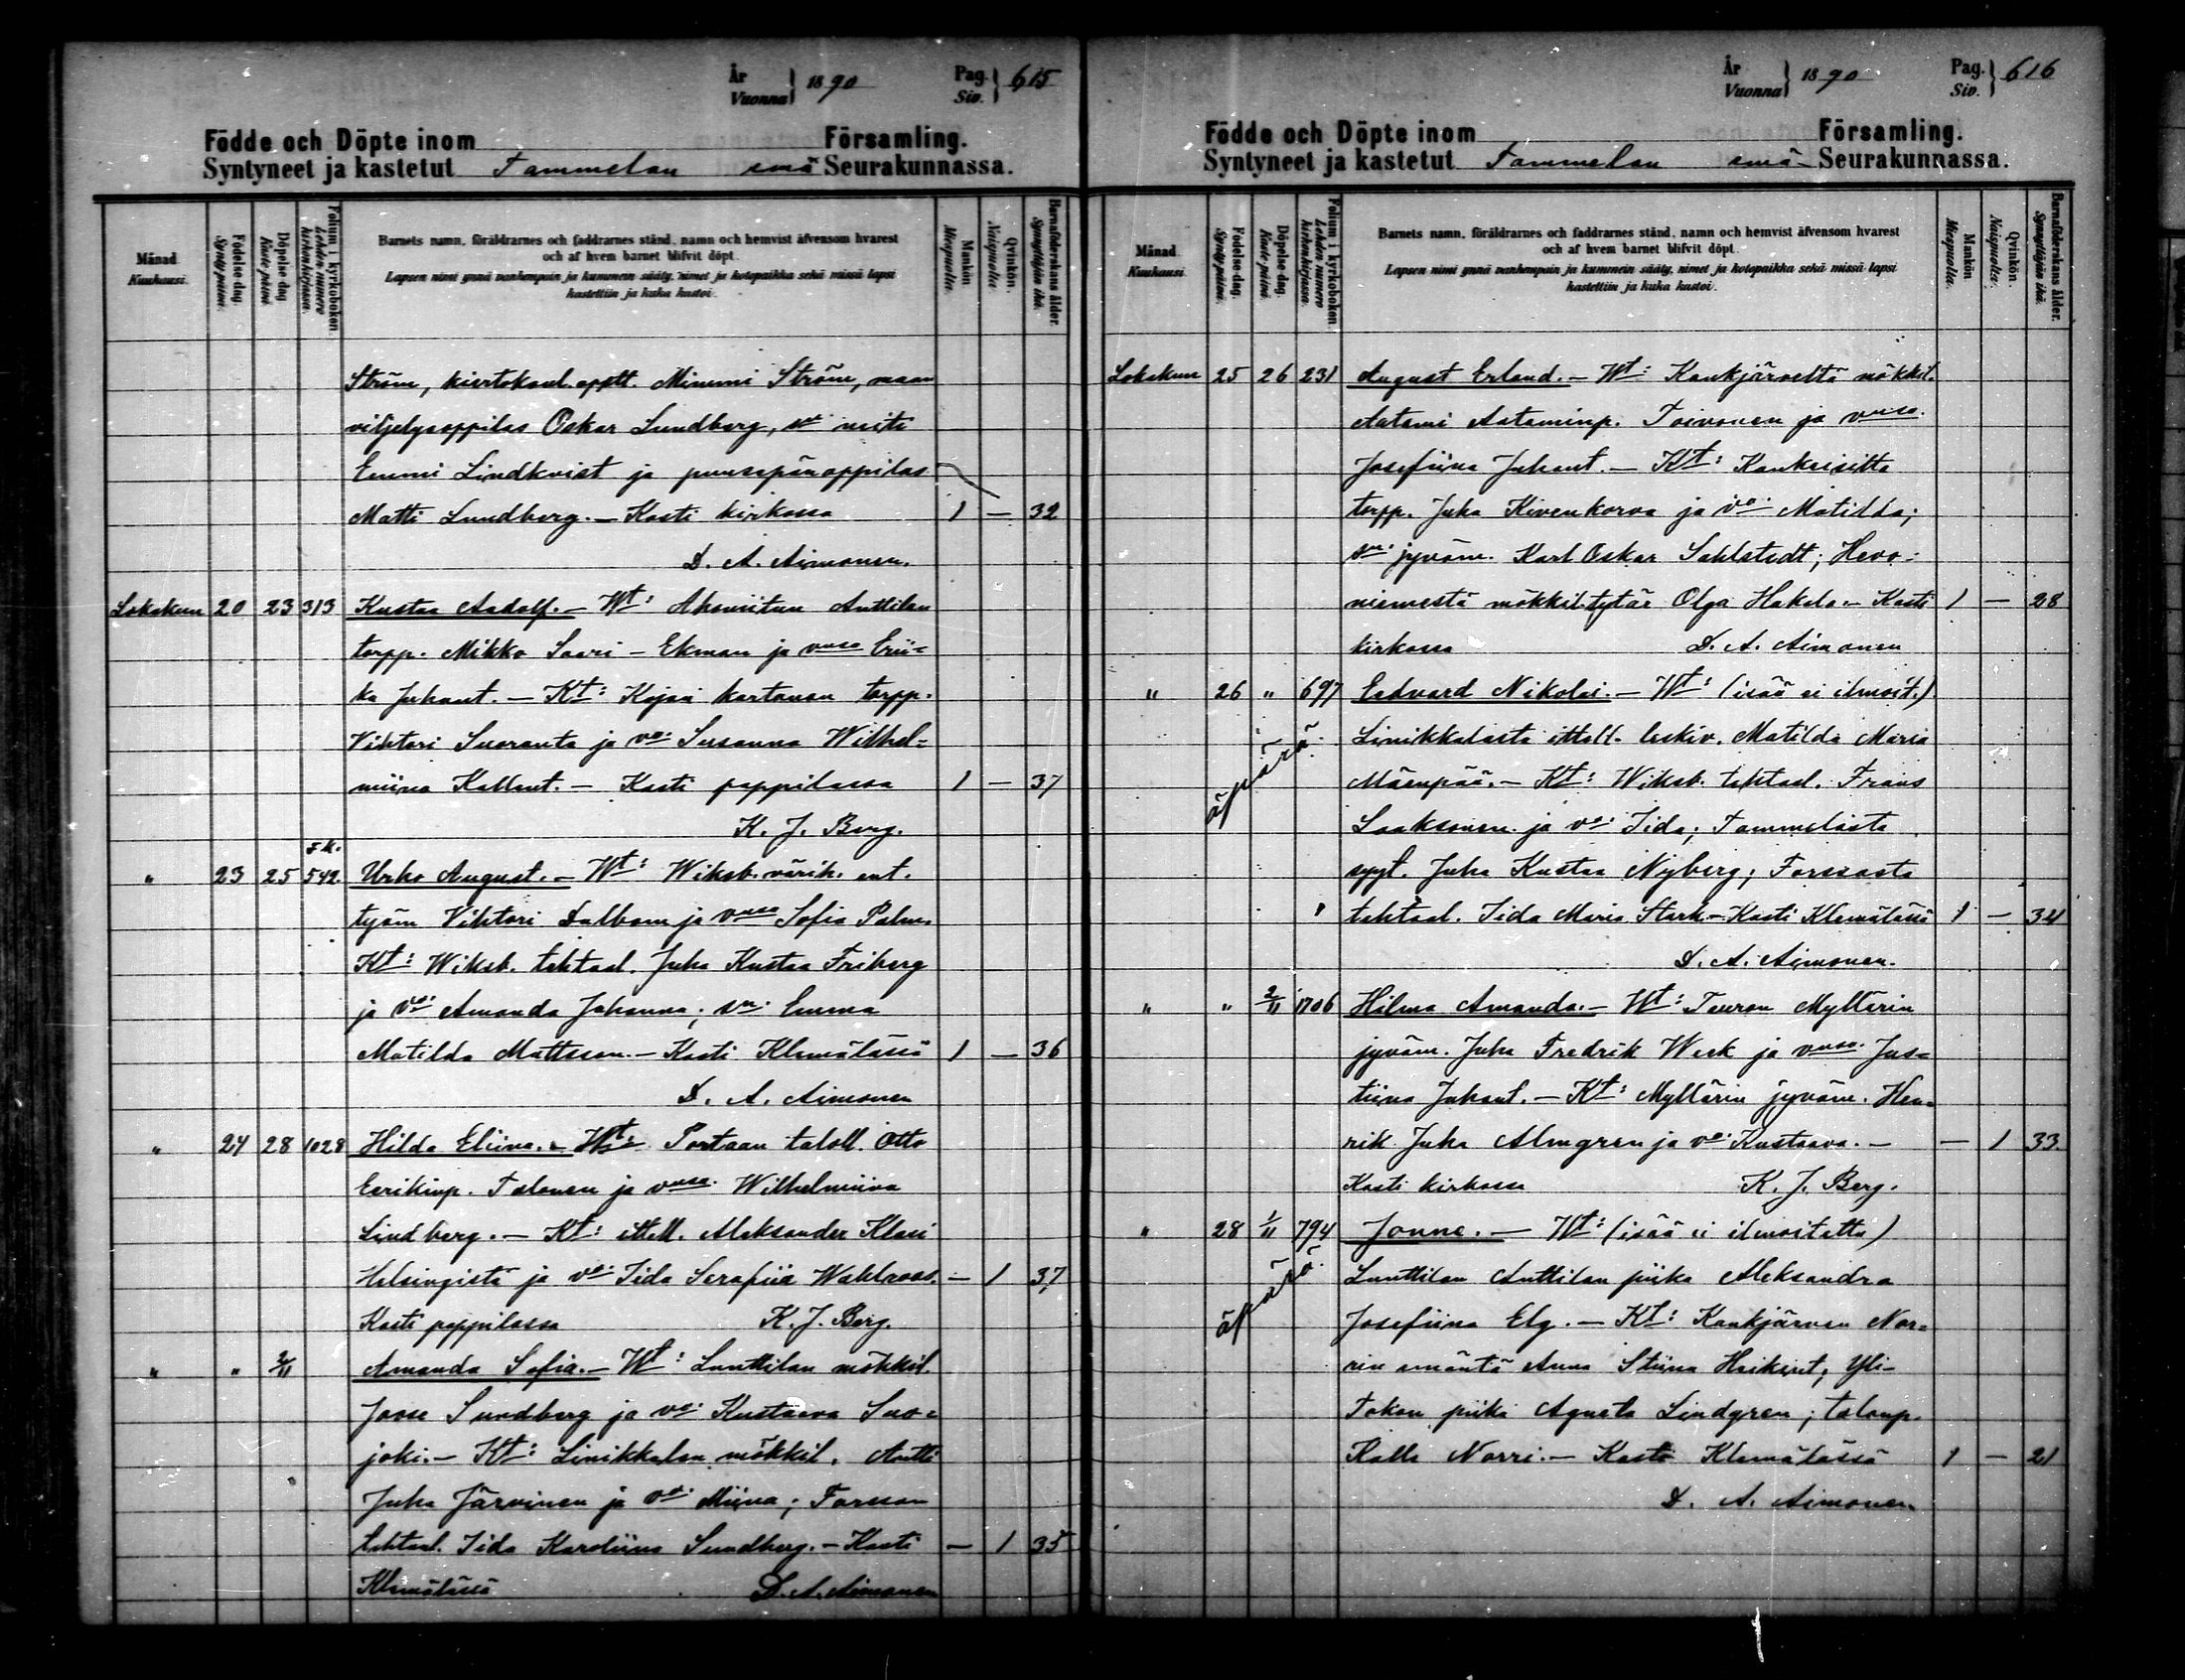 År Vuonna } 1890 Pag. Siv. } 615
Födde och Döpte inom Församling.
Syntyneet ja kastetut Tammelan emä Seurakunnassa.
Månad Kuukausi.
Födelse dag. Synty päivä.
Döpelse dag. Kaste päivä.
Folium i kyrkoboken. Lehden numero kirkonkirjassa.
Barnets namn, föräldrarnes och faddrarnes stånd, namn och hemvist äfvensom hvarest
och af hvem barnet blifvit döpt.
Lapsen nimi ynnä vanhempain ja kummein sääty, nimet ja kotopaikka sekä missä lapsi
kastettiin ja kuka kastoi.
Mankön Miespuolta.
Qvinkön. Naispuolta.
Barnaföderskans ålder. Synnyttäjän ikä.
Ström, kiertokoul. opett. Minmi Ström, maan
viljelysoppilas Oskar Lundberg, sn neiti
Emmi Lindkvist ja puusepänoppilas
Matti Lundberg. — Kasti kirkossa 1 — 32
D. A. Aimonen.
Lokakuu 20 23 313 Kustaa Aadolf. — Wt: Ahoniitun Anttilan
torpp. Mikko Saari - Ekman ja vmso Erii-
ka Juhant. — Kt: Kojaa kartanon torpp.
Vihtori Suoranta ja vo: Susanna Wilhel-
miina Kallent. — Kasti pappilassa 1 — 37
K. J. Berg.
" 23 25 F.K. 542. Urho August. — Wt: Wiksb. värik. ent.
työm Vihtori Dalbom ja vmso Sofia Palm.
Kt: Wiksb. tehtaal. Juha Kustaa Friberg
ja vo: Amanda Johanna; sn. Emma
Matilda Mattsson. — Kasti Klemälässä 1 — 36
D. A. Aimonen
" 24 28 1028 Hilda Eliina. — Wt: Portaan taloll. Otto
Eerikinp. Talonen ja vmso. Wilhelmiina
Lindberg. — Kt: ittell. Aleksander Klasi
Helsingistä ja vo: Iida Serafiia Wahlroos. — 1 37
Kasti pappilassa K. J. Berg.
" " 2/11 Amanda Sofia. — Wt: Lunttilan mökkil.
Joose Sundberg ja vo: Kustaava Suo-
joki. — Kt: Linikkalan mökkil. Antti
Juha Järvinen ja vo: Miina; Forssan
tehtaal. Iida Karoliina Sundberg. — Kasti — 1 35
Klemälässä D. A. Aimonen
År Vuonna } 1890 Pag. Siv. } 616
Födde och Döpte inom Församling.
Syntyneet ja kastetut Tammelan emä- Seurakunnassa.
Månad Kuukausi.
Födelse dag. Synty päivä.
Döpelse dag. Kaste päivä.
Folium i kyrkoboken. Lehden numero kirkonkirjassa.
Barnets namn, föräldrarnes och faddrarnes stånd, namn och hemvist äfvensom hvarest
och af hvem barnet blifvit döpt.
Lapsen nimi ynnä vanhempain ja kummein sääty, nimet ja kotopaikka sekä missä lapsi
kastettiin ja kuka kastoi.
Mankön Miespuolta.
Qvinkön. Naispuolta.
Barnaföderskans ålder. Synnyttäjän ikä.
Lokakuu 25 26 231 August Erland. — Wt: Kaukjärveltä mökkil.
Aatami Aataminp. Toivonen ja vmso.
Josefiina Juhant. — Kt: Kaukaisilta
torpp. Juha Kivenkorva ja vo: Matilda;
sn. jyväm. Karl Oskar Sahlstedt; Hevo-
niemestä mökkil. tytär Olga Hakala — Kasti 1 — 28
kirkossa D. A. Aimonen
" 26 " 697 Eedvard Nikolai. — Wt: (isää ei ilmoit.)
äpärä. Linikkalasta ittell. leskiv. Matilda Maria
Mäenpää. — Kt: Wiksb. tehtaal. Frans
Laaksonen ja vo: Iida; Tammelasta
sppt. Juha Kustaa Nyberg; Forssasta
tehtaal. Iida Maria Stark — Kasti Klemälässä 1 — 34
D. A. Aimonen.
" " 2/11 1706 Hilma Amanda. — Wt: Teuron Myllärin
jyväm. Juha Fredrik Week ja vmso. Jus-
tiina Juhant. — Kt: Myllärin jyväm. Hen-
rik Juha Almgren ja vo: Kustaava. — — 1 33.
Kasti kirkossa K. J. Berg.
" 28 1/11 794 Jonne. — Wt: (isää ei ilmoitettu)
äpärä. Lunttilan Anttilan piika Aleksandra
Josefiina Elg. — Kt: Kaukjärven Nor-
rin emäntä Anna Stiina Heikint; Yli-
Tokon piika Agneta Lindgren; talonp.
Kalle Norri. — Kasti Klemälässä 1 — 21
D. A. Aimonen.